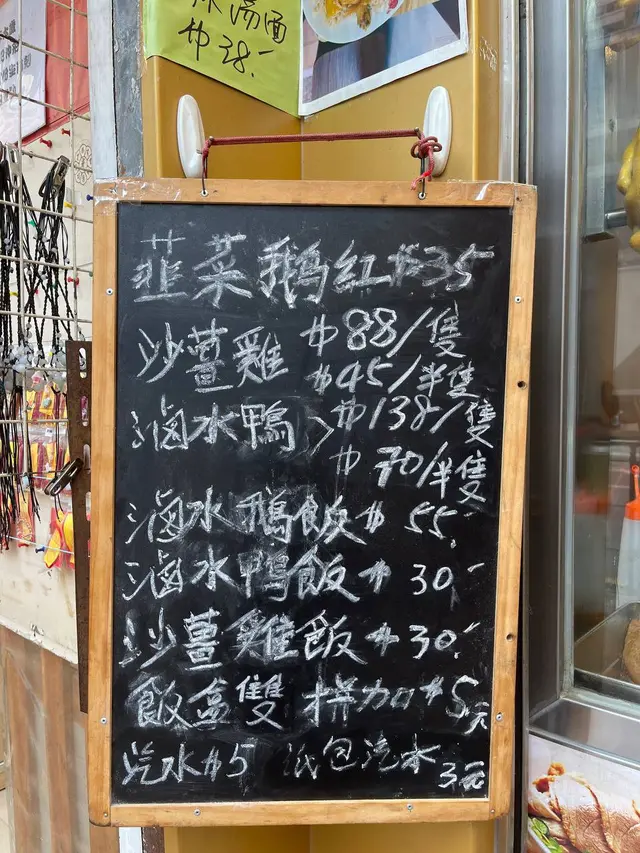 湯面
$38.-
韮菜鵝紅$35
沙薑雞 $88/隻
$45/半隻
滷水鴨>$138/隻
$70/半隻
滷水鵝飯$55.
滷水鴨飯$30.-
沙薑雞飯$30.-
飯盒雙拼加$5元
汽水$5 紙包汽水3元